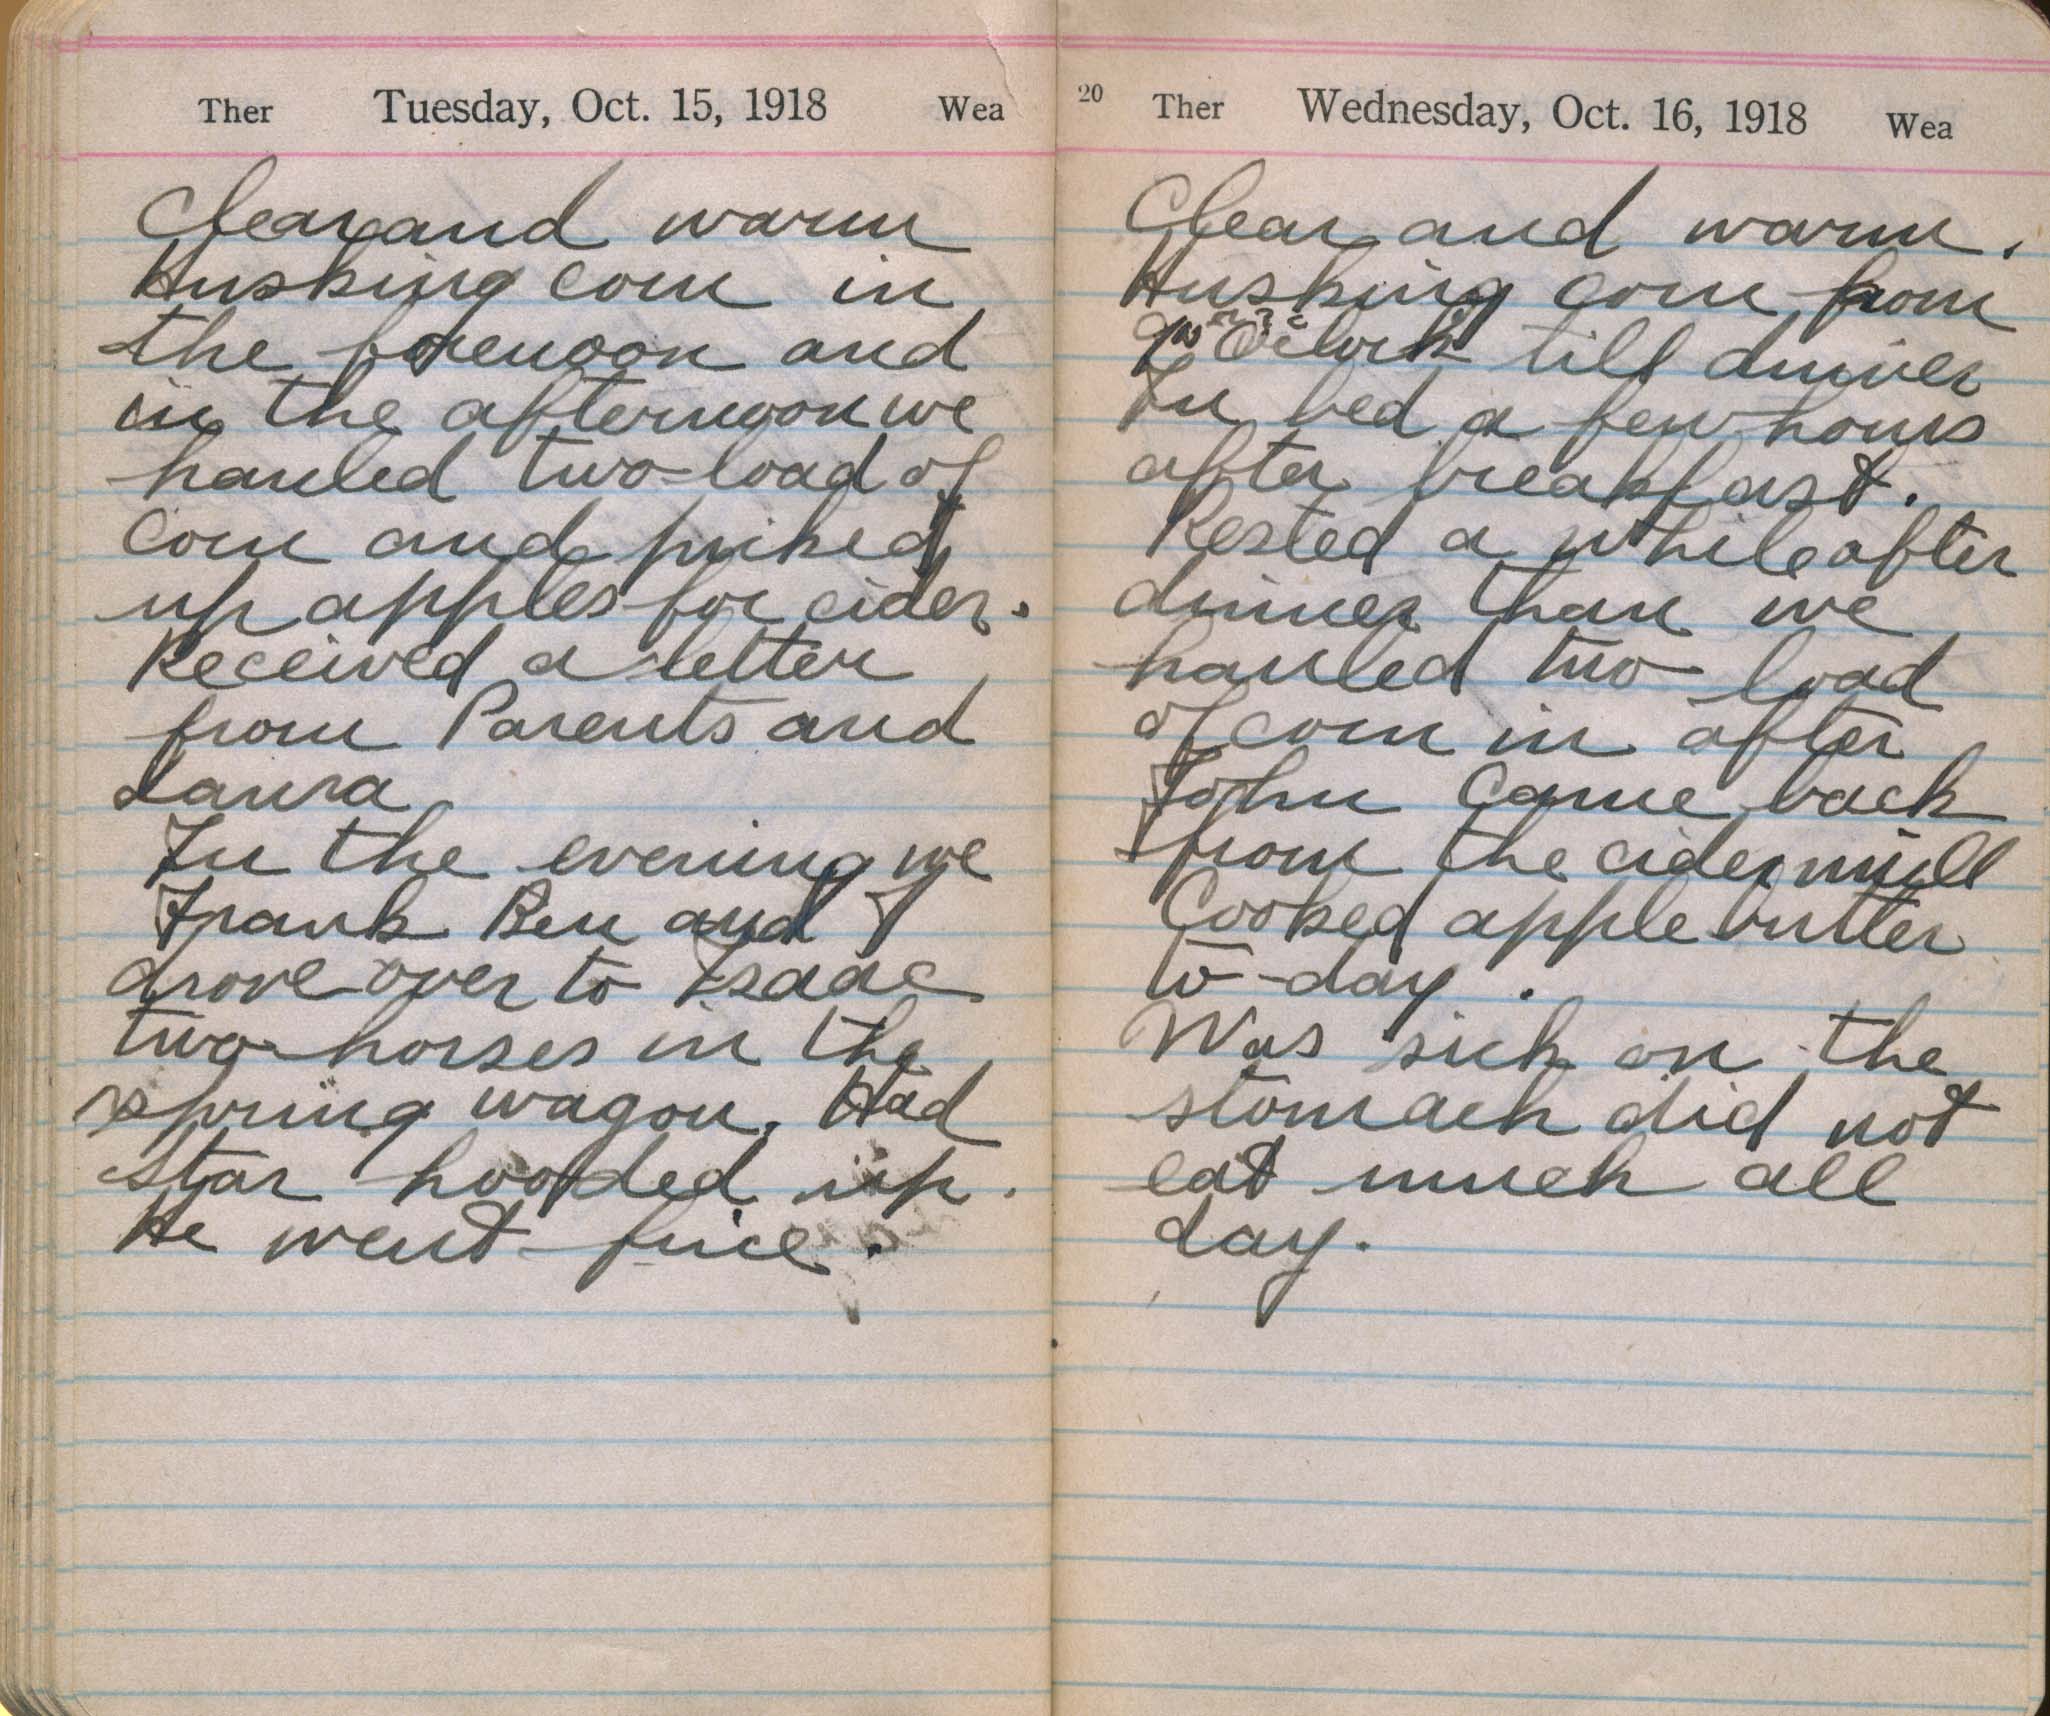 Ther Tuesday, Oct. 15, 1918 Wea
Clear and warm
Husking corn in
the forenoon and
in the afternoon we
hauled two load of
corn and picked
up apples for cider.
Received a letter
from Parents and
Laura
In the evening we
Frank Ben and I
drove over to Isaac
two horses in the
spring wagon. Had
Star hooded up.
He went fine.
20 Ther Wednesday, Oct. 16, 1918 Wea
Clear and warm.
Husking corn from
O'clock till dinner
In bed a few hours
after breakfast.
Rested a while after
dinner than we
hauled two load
of corn in after
John Came back
from the cider mill
Cooked apple butter
to-day.
Was sick on the
stomach did not
eat much all
day.